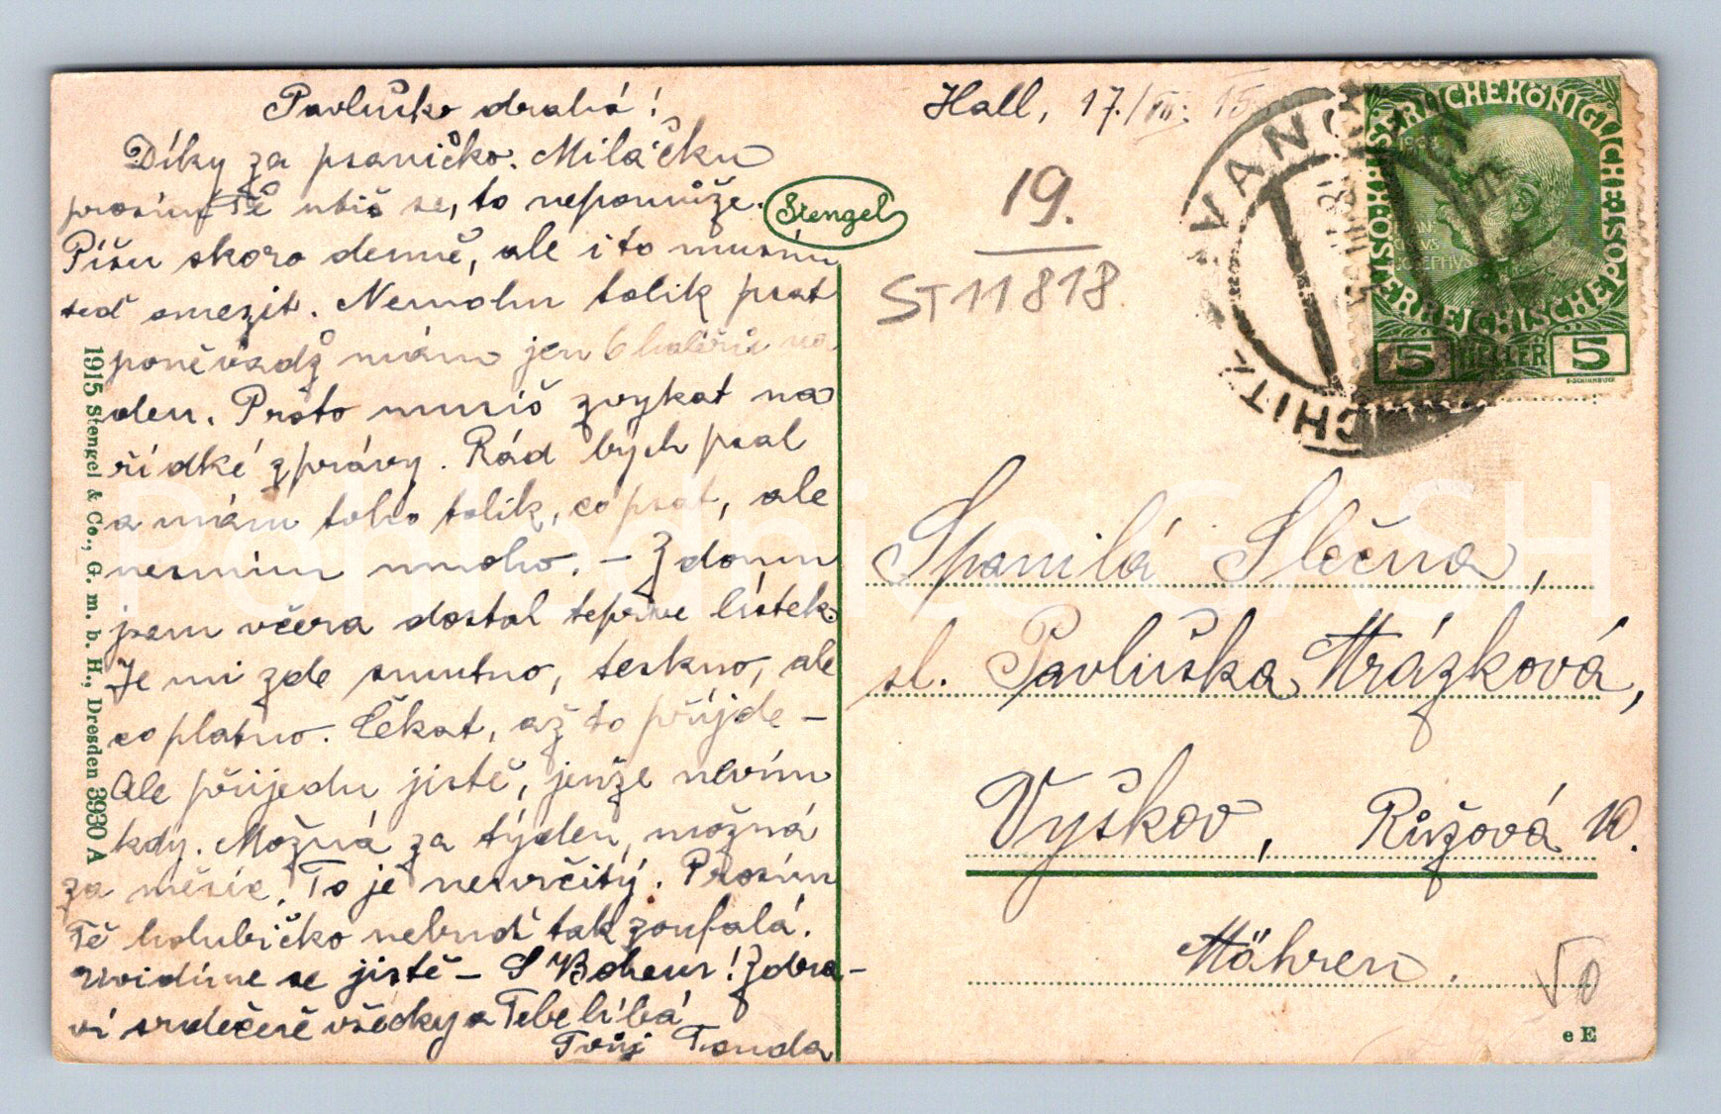 Pavluško drahá!
Díky za psaníčko. Miláčku
prosím Tě utiš se, to nepomůže.
Píšu skoro denně, ale i to musím
teď omezit. Nemohu tolik psát
poněvadž mám jen 6 haléřů na
den. Proto musíš zvykat na
řídké zprávy. Rád bych psal
a mám toho tolik, co psat, ale
nesmím mnoho. – Z domu
jsem včera dostal teprve lístek.
Je mi zde smutno, teskno, ale
co platno. Čekat, až to přijde –
Ale přijedu jistě, jenže nevím
kdy. Možná za týden, možná
za měsíc. To je neurčitý. Prosím
Tě holubičko nebuď tak zoufalá.
Uvidíme se jistě – S Bohem! Zdra-
ví srdečně všecky a Tebe líbá
Tvůj Tonda
1915 Stengel & Co., G. m. b. H., Dresden 3930 A
Stengel
Hall, 17./VIII. 15
19.
ST 11818
ÖSTERREICHISCHE POST
5 HELLER 5
Spanilá Slečna,
sl. Pavluška Mrázková,
Vyškov, Růžová 10.
Mähren.
50
e E
Pohlednice CASH